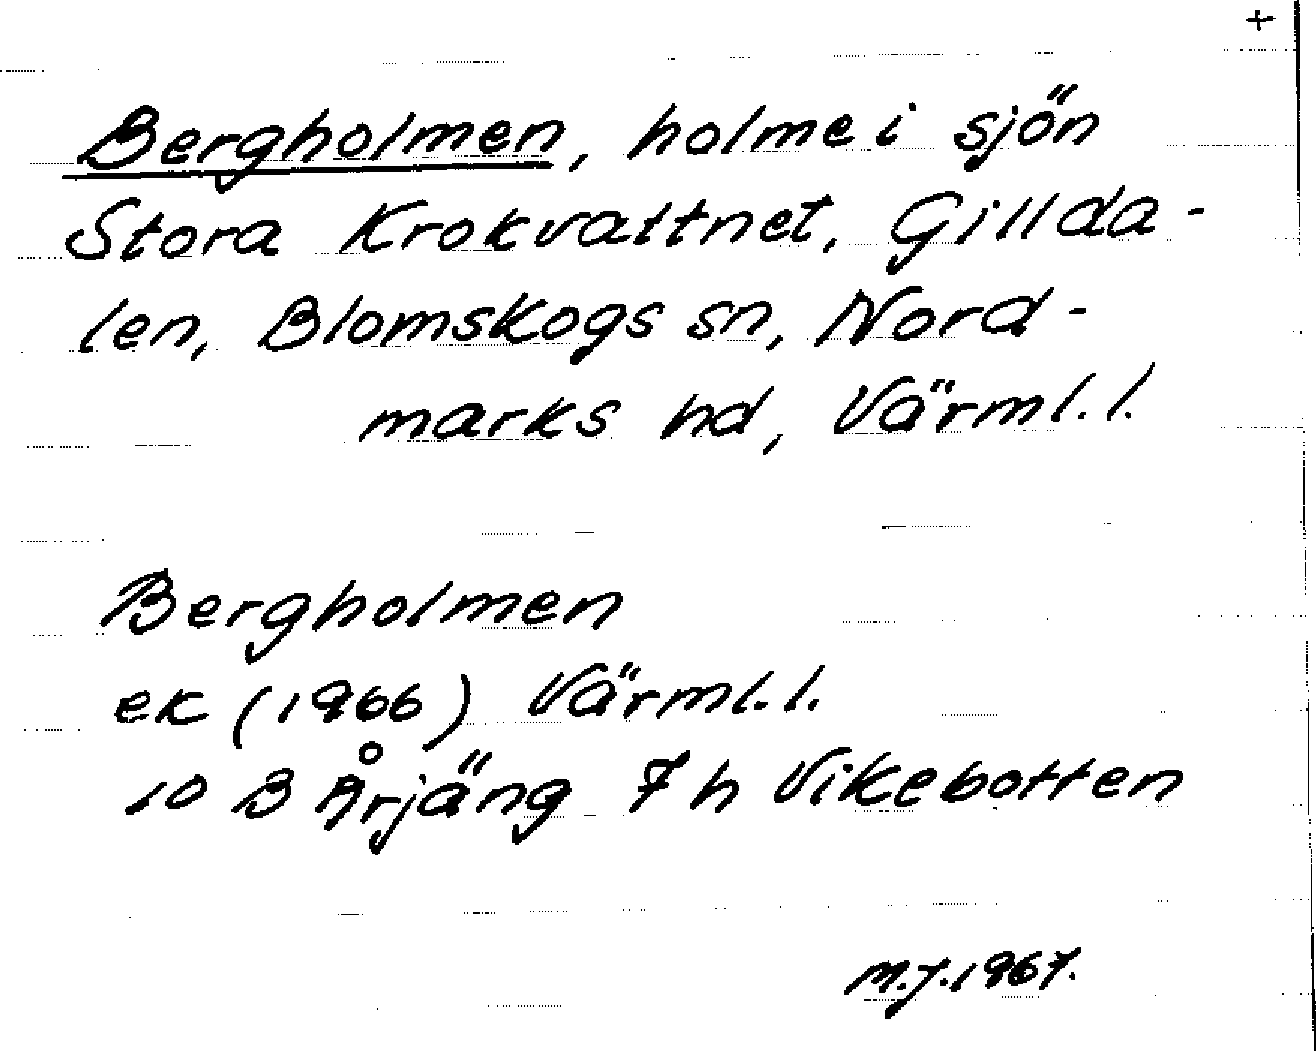 +
Bergholmen, holme i sjön
Stora Krokvattnet, Gillda-
len, Blomskogs sn, Nord-
marks hd, Värml. l.
Bergholmen
ek (1966) Värml. l.
10 B Årjäng 7 h Vikebotten
M.J. 1967.